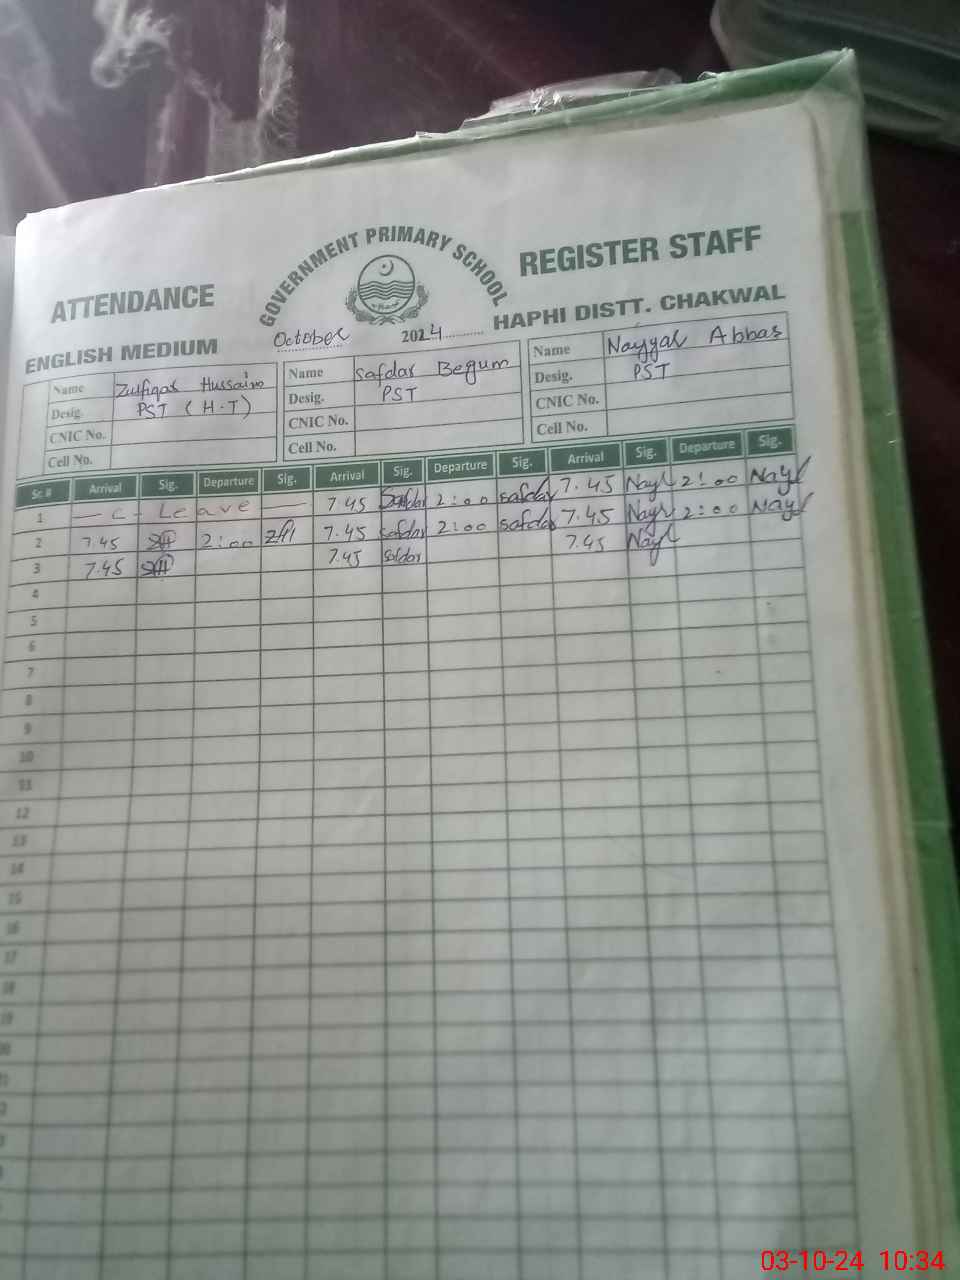 GOVERNMENT PRIMARY SCHOOL
ATTENDANCE REGISTER STAFF
ENGLISH MEDIUM October 2024 HAPHI DISTT. CHAKWAL
Name Zulfiqar Hussain Name Safdar Begum Name Nayyar Abbas
Desig. PST (H.T) Desig. PST Desig. PST
CNIC No. CNIC No. CNIC No.
Cell No. Cell No. Cell No.
Sr. # Arrival Sig. Departure Sig. Arrival Sig. Departure Sig. Arrival Sig. Departure Sig.
1 — C - Leave — 7.45 Safdar 2:00 Safdar 7.45 Nayl 2:00 Nayl
2 7.45 2:00 7.45 Safdar 2:00 Safdar 7.45 Nayl 2:00 Nayl
3 7.45 7.45 Safdar 7.45 Nayl
4
5
6
7
8
9
10
11
12
13
14
15
16
17
18
19
03-10-24 10:34